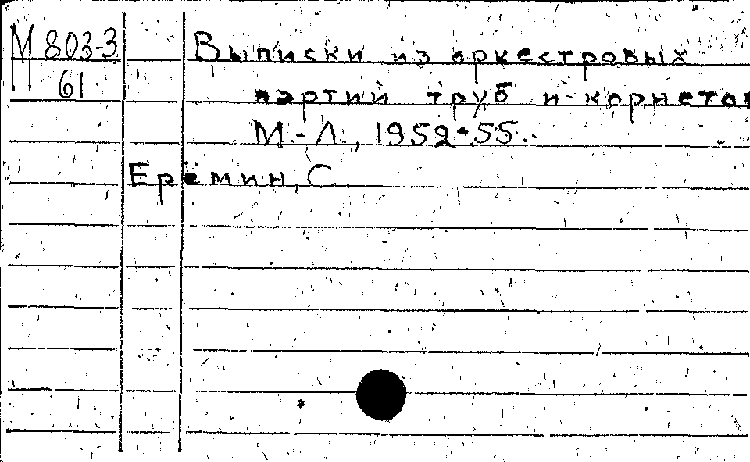 М 803-3 Выписки из оркестровых
61 партий труб и корнетов
М.-Л., 1952-55.
Еремин, С.